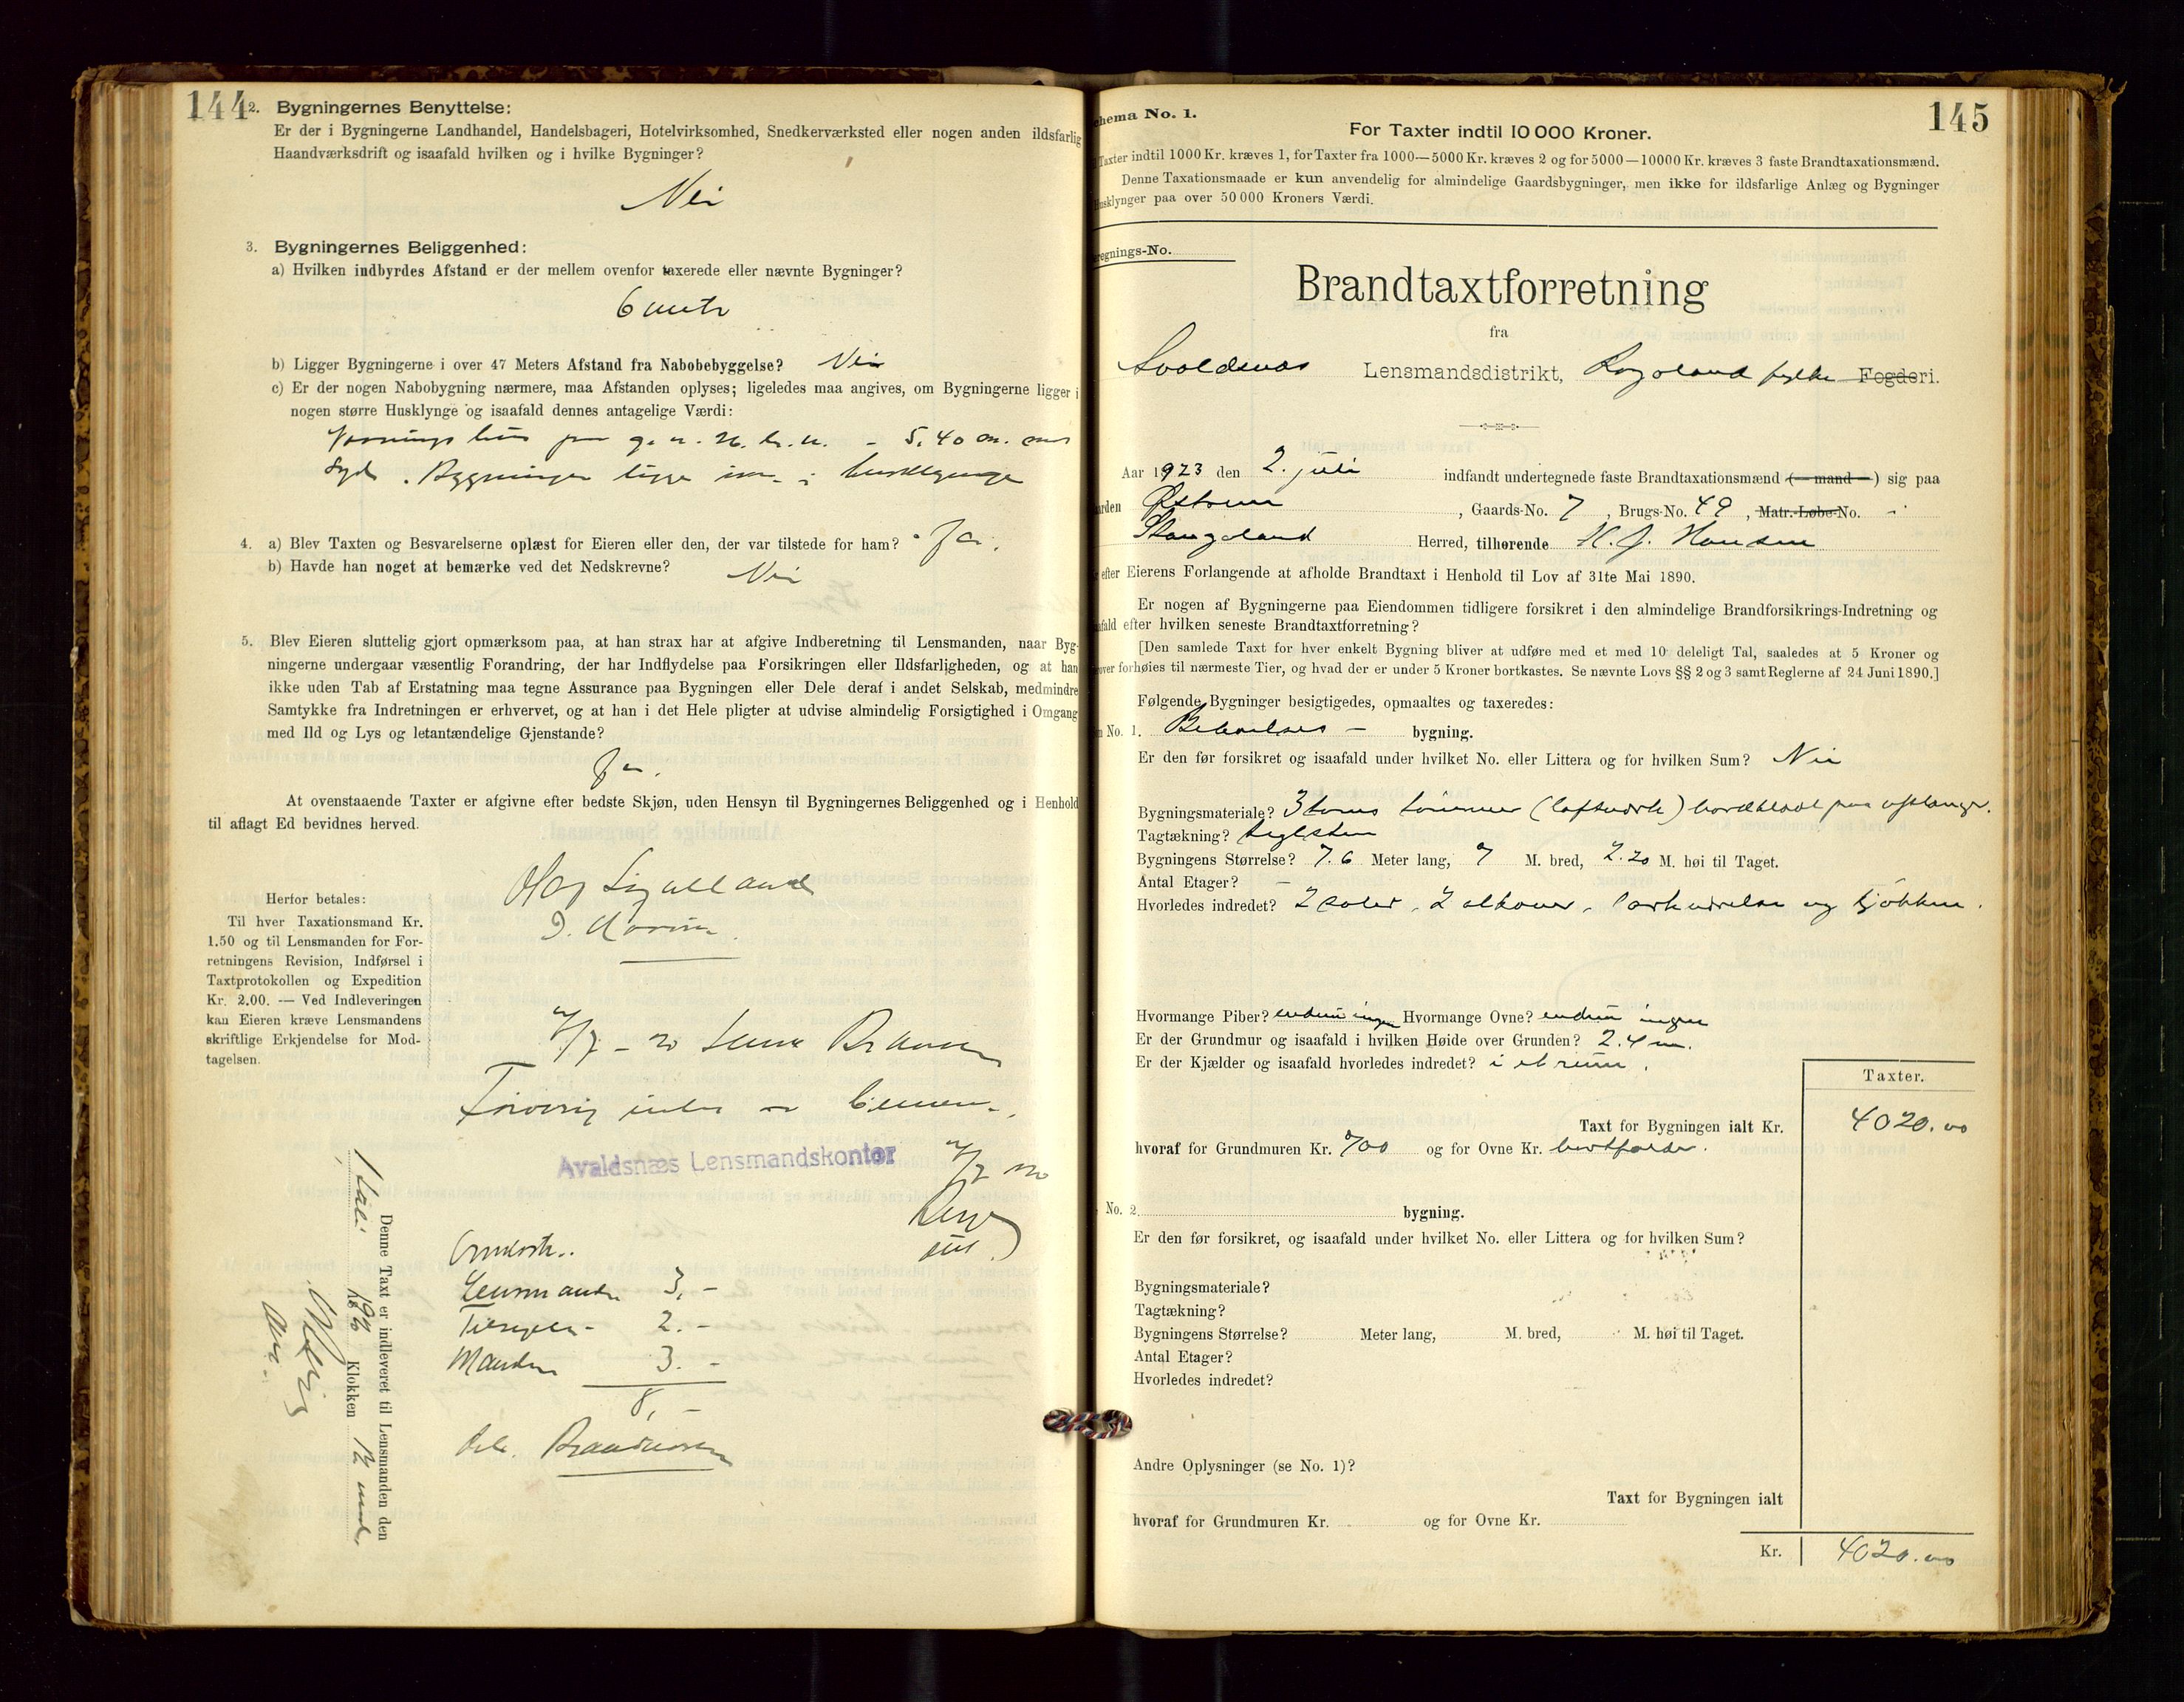 144
2. Bygningernes Benyttelse:
Er der i Bygningerne Landhandel, Handelsbageri, Hotelvirksomhed, Snedkerværksted eller nogen anden ildsfarlig
Haandværksdrift og isaafald hvilken og i hvilke Bygninger?
Nei
3. Bygningernes Beliggenhed:
a) Hvilken indbyrdes Afstand er der mellem ovenfor taxerede eller nævnte Bygninger?
6 metr
b) Ligger Bygningerne i over 47 Meters Afstand fra Nabobebyggelse? Nei
c) Er der nogen Nabobygning nærmere, maa Afstanden oplyses; ligeledes maa angives, om Bygningerne ligger i
nogen større Husklynge og isaafald dennes antagelige Værdi:
hus paa g. n. br. n. - 5,40 m. mot
Syd. Bygningen ligger i husklynge
4. a) Blev Taxten og Besvarelserne oplæst for Eieren eller den, der var tilstede for ham? Ja.
b) Havde han noget at bemærke ved det Nedskrevne? Nei
5. Blev Eieren sluttelig gjort opmærksom paa, at han strax har at afgive Indberetning til Lensmanden, naar Byg-
ningerne undergaar væsentlig Forandring, der har Indflydelse paa Forsikringen eller Ildsfarligheden, og at han
ikke uden Tab af Erstatning maa tegne Assurance paa Bygningen eller Dele deraf i andet Selskab, medmindre
Samtykke fra Indretningen er erhvervet, og at han i det Hele pligter at udvise almindelig Forsigtighed i Omgang
med Ild og Lys og letantændelige Gjenstande?
Ja.
At ovenstaaende Taxter er afgivne efter bedste Skjøn, uden Hensyn til Bygningernes Beliggenhed og i Henhold
til aflagt Ed bevidnes herved.
Herfor betales:
Til hver Taxationsmand Kr.
1.50 og til Lensmanden for For-
retningens Revision, Indførsel i
Taxtprotokollen og Expedition
Kr. 2.00. — Ved Indleveringen
kan Eieren kræve Lensmandens
skriftlige Erkjendelse for Mod-
tagelsen.
Avaldsnæs Lensmandskontor
Lensmanden 3,-
2.-
Manden 3.-
8,-
Denne Taxt er indleveret til Lensmanden den
Juli 192 Klokken 12
145
hema No. 1.
For Taxter indtil 10 000 Kroner.
Taxter indtil 1000 Kr. kræves 1, for Taxter fra 1000—5000 Kr. kræves 2 og for 5000—10000 Kr. kræves 3 faste Brandtaxationsmænd.
Denne Taxationsmaade er kun anvendelig for almindelige Gaardsbygninger, men ikke for ildsfarlige Anlæg og Bygninger
Husklynger paa over 50 000 Kroners Værdi.
regnings-No.
Brandtaxtforretning
fra
Avaldsnæs Lensmandsdistrikt, Rogaland fylke Fogderi.
Aar 1923 den 2. juli indfandt undertegnede faste Brandtaxationsmænd (— mand —) sig paa
arden Østrem, Gaards-No. 7, Brugs-No. 49, Matr.-Løbe-No. - i
Stangaland Herred, tilhørende H. J. Hansen
efter Eierens Forlangende at afholde Brandtaxt i Henhold til Lov af 31te Mai 1890.
Er nogen af Bygningerne paa Eiendommen tidligere forsikret i den almindelige Brandforsikrings-Indretning og
afald efter hvilken seneste Brandtaxtforretning?
[Den samlede Taxt for hver enkelt Bygning bliver at udføre med et med 10 deleligt Tal, saaledes at 5 Kroner og
over forhøies til nærmeste Tier, og hvad der er under 5 Kroner bortkastes. Se nævnte Lovs §§ 2 og 3 samt Reglerne af 24 Juni 1890.]
Følgende Bygninger besigtigedes, opmaaltes og taxeredes:
No. 1. Beboelses - bygning.
Er den før forsikret og isaafald under hvilket No. eller Littera og for hvilken Sum? Nei
Bygningsmateriale? 3 toms tømmer (loftverk) bordklædt paa
Tagtækning? teglsten
Bygningens Størrelse? 7.6 Meter lang, 7 M. bred, 2.20 M. høi til Taget.
Antal Etager? -
Hvorledes indredet? 2 , 2 , og kjøkken.
Hvormange Piber? endnu ingen Hvormange Ovne? endnu ingen
Er der Grundmur og isaafald i hvilken Høide over Grunden? 2.4 m.
Er der Kjælder og isaafald hvorledes indredet? i et rum.
Taxter.
Taxt for Bygningen ialt Kr. 4020.00
hvoraf for Grundmuren Kr. 700 og for Ovne Kr. bortfalder.
No. 2. bygning.
Er den før forsikret, og isaafald under hvilket No. eller Littera og for hvilken Sum?
Bygningsmateriale?
Tagtækning?
Bygningens Størrelse? Meter lang, M. bred, M. høi til Taget.
Antal Etager?
Hvorledes indredet?
Andre Oplysninger (se No. 1)?
Taxt for Bygningen ialt
hvoraf for Grundmuren Kr. og for Ovne Kr.
Kr. 4020.00